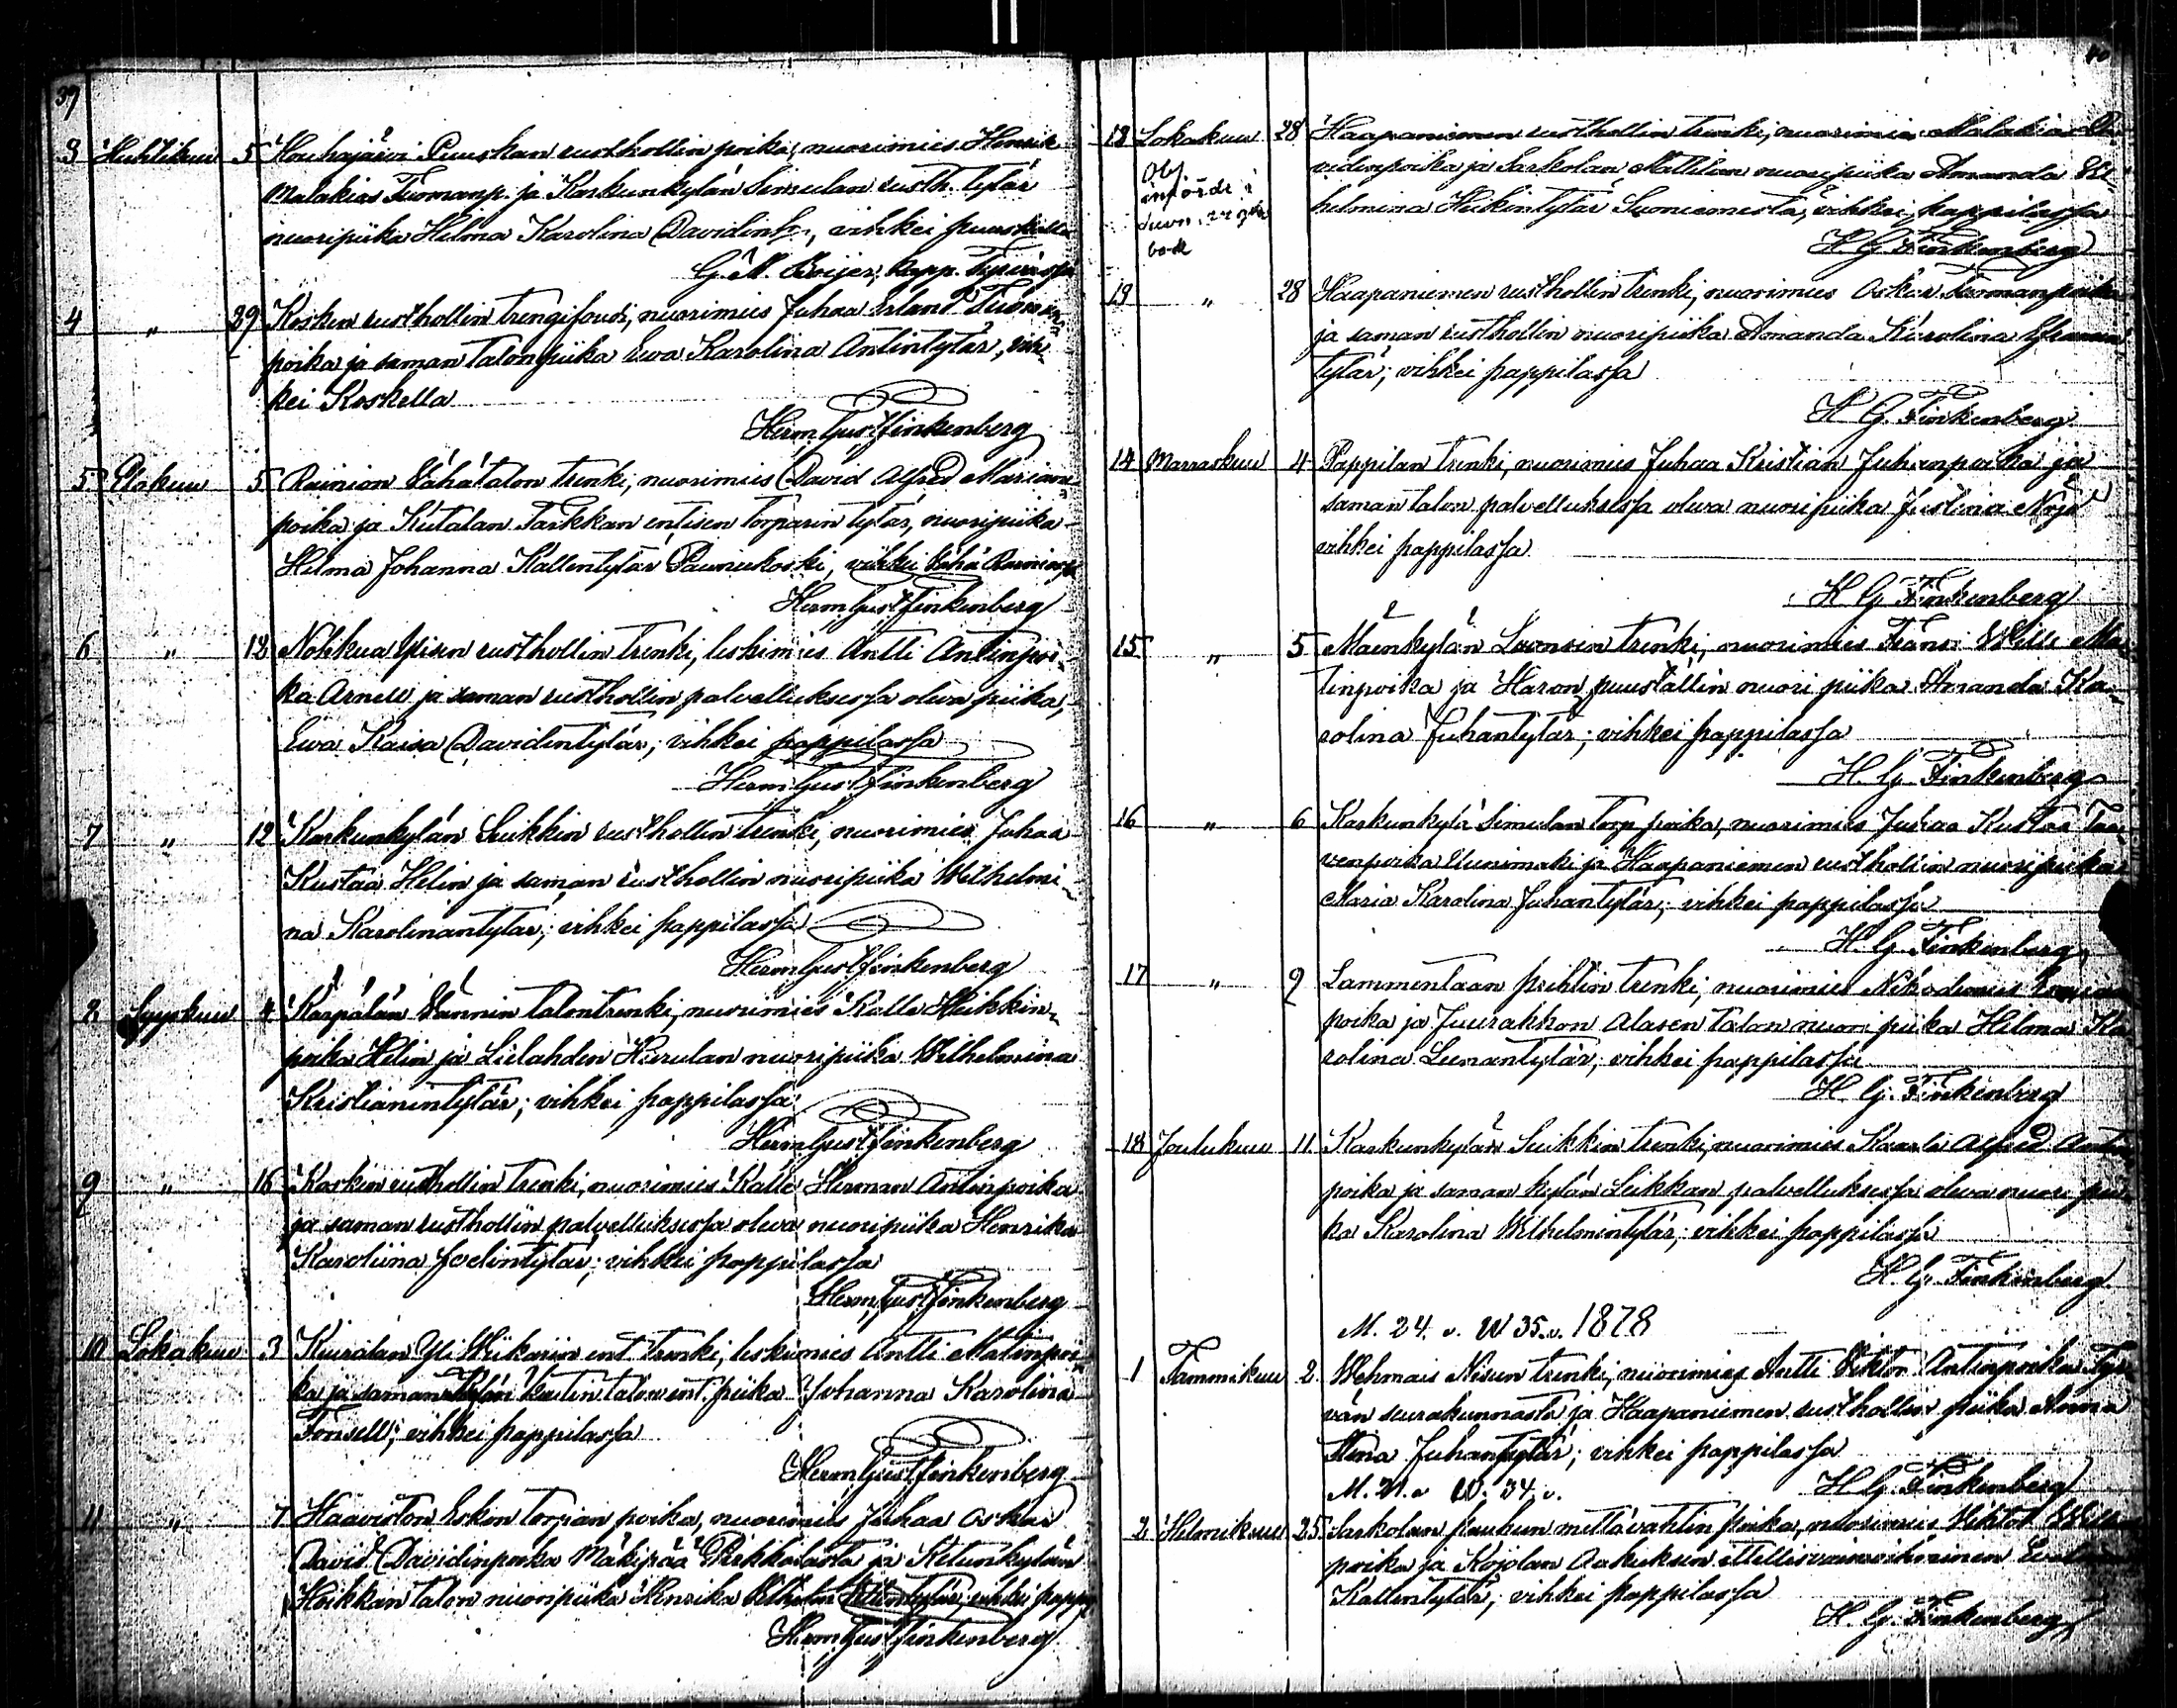 39
3 Huhtikuu 5 Houhajärvi Puuskan rusthollin poika, nuorimies Henrik
Malakias Tuomanp. ja Karkunkylän Simulan rusth. tytär
nuoripiika Helma Karolina Davidint., vihkei Puuskalla
G. M. Boijer, kapp. Tyrväässä
4 " 29 Kosken rusthollin trengifouti, nuorimies Juhaa Erland Tuoman-
poika ja saman talon piika Ewa Karolina Antintytär, vih-
kei Koskella
Herm Gust Finkenberg
5 Elokuu 5 Rainion Vähätalon trenki, nuorimies David Alfred Marian-
poika ja Kutalan Tarkkan entisen torparin tytär, nuoripiika
Helma Johanna Kallentytär, vihkei Vähä Rainiossa
Herm Gust Finkenberg
6 " 12 Nohkua Ylisen rusthollin trenki, leskimies Antti Antinpoi-
ka Arnell ja saman rusthollin palvelluksessa olewa piika,
Ewa Kaisa Davidintytär; vihkei pappilassa
Herm Gust Finkenberg
7 " 12 Karkunkylän Seikkin rusthollin trenki, nuorimies Juhaa
Kustaa Helin ja saman rusthollin nuoripiika Wilhelmi-
na Karolinantytär; vihkei pappilassa
Herm Gust Finkenberg
8 Syyskuu 4 Kärpälän Wännin talon trenki, nuorimies Kalle Heikkin-
poika Helin ja Lielahden nuoripiika Wilhelmina
Kristianintytär; vihkei pappilassa
Herm Gust Finkenberg
9 " 16 Kosken rusthollin trenki, nuorimies Kalle Herman Antinpoika
ja saman rusthollin palvelluksessa olewa nuoripiika Henrika
Karoliina Joelintytär; vihkei pappilassa
Herm Gust Finkenberg
10 Lokakuu 3 Kiurälan Yli ent. trenki, leskimies Antti Matinpoi-
ka ja saman kylän talon ent. piika Johanna Karolina
Fonsell; vihkei pappilassa
Herm Gust Finkenberg
11 " 7 Haaviston Eskon torpan poika, nuorimies Juhaa Oskar
David Davidinpoika Mäkipää Pirkkalasta ja
Heikkan talon nuoripiika Henrika vihkei papp.
Herm Gust Finkenberg
40
12 Lokakuu 28 Haapaniemen rusthollin trenki, nuorimies Malakias Da-
vidinpoika ja Sarkolan Mattilan nuoripiika Amanda Wil-
helmina Heikintytär Suoniemestä, vihkei pappilassa
H. G. Finkenberg
Obj
införde i
bok
13 " 28 Haapaniemen rusthollin trenki, nuorimies Oskar Tuomanpoika
ja saman rusthollin nuoripiika Amanda Karolina
tytär; vihkei pappilassa
H. G. Finkenberg
14 Marraskuu 4 Pappilan trenki, nuorimies Juhaa Kristian Juhanpoika ja
saman talon palvelluksessa olewa nuoripiika Justina Nöjd
vihkei pappilassa
H. G. Finkenberg
15 " 5 Mäenkylän trenki, nuorimies Frans Wille Ma-
tinpoika ja Haron puustallin nuori piika Amanda Ka-
rolina Juhantytär; vihkei pappilassa
H. G. Finkenberg
16 " 6 Karkunkylä Simulan torp. poika, nuorimies Juhaa Kustaa Taa-
venpoika ja Haapaniemen rusthollin nuoripiika
Maria Karolina Juhantytär; vihkei pappilassa
H. G. Finkenberg
17 " 9 Lammentaan trenki, nuorimies Nikodemus
poika ja Juurakkon Alasen talon nuori piika Helma Ka-
rolina Leenantytär; vihkei pappilassa
H. G. Finkenberg
18 Joulukuu 11. Karkunkylän Seikkin trenki, nuorimies Kaarle Alfred Antin-
poika ja saman kylän palvelluksessa olewa nuori pii-
ka Karolina Wilhelmintytär; vihkei pappilassa
H. G. Finkenberg
M. 24. v. W 35. v. 1878
1 Tammikuu 2. Wehmais trenki, nuorimies Antti Viktor Antinpoika Tyr-
vän seurakunnasta ja Haapaniemen rusthollin piika Anna
Stina Juhantytär; vihkei pappilassa
H. G. Finkenberg
M. 21. v W. 34. v.
2 Helmikuu 25 Sarkolan mettävahtin poika, nuorimies Wihtor
poika ja Kojolan
Kallentytär; vihkei pappilassa
H. G. Finkenberg